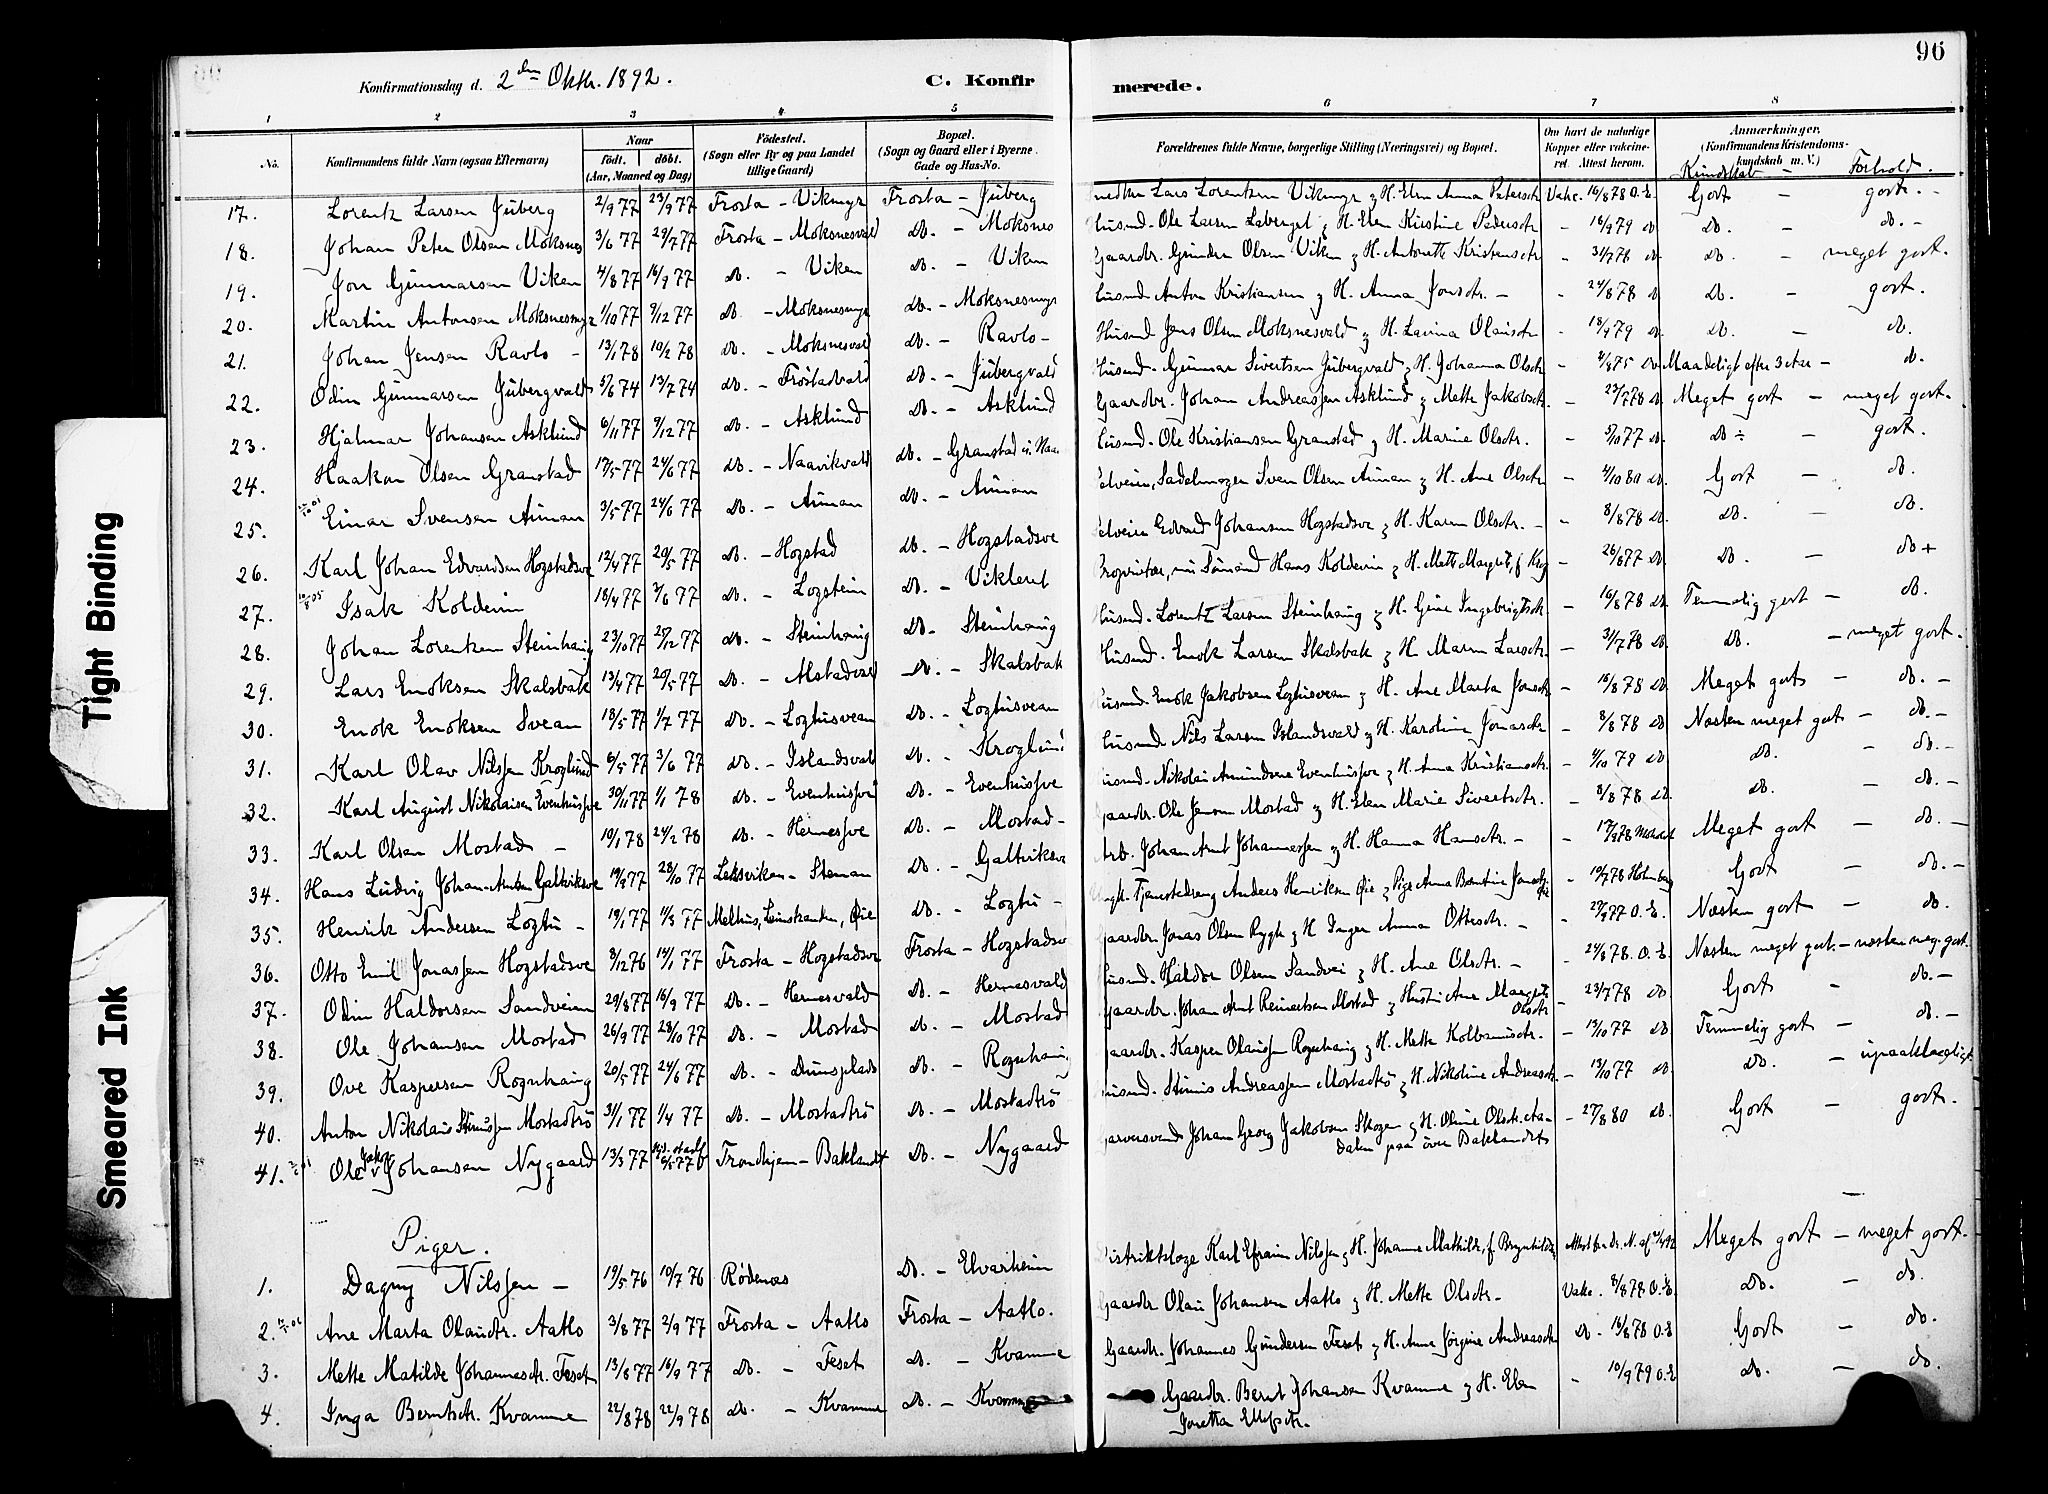 96
Konfirmationsdag d. 2den Oktbr. 1892.
C. Konfirmerede.
1 2 3 4 5 6 7 8
No. Konfirmandens fulde Navn (ogsaa Efternavn) Naar født. døbt. (Aar, Maaned og Dag) Fødested. (Sogn eller By og paa Landet tillige Gaard) Bopæl. (Sogn og Gaard eller i Byerne Gade og Hus-No. Forældrenes fulde Navne, borgerlige Stilling (Næringsvei) og Bopæl. Om havt de naturlige Kopper eller vaccineret. Attest herom. Anmærkninger. (Konfirmandens Kristendomskundskab m. V.)
Kundskab - Forhold.
17. Lorentz Larsen Juberg 2/9 77 23/9 77 Frosta - Vikmyr Frosta - Juberg Lars Lorentzen Vikmyr & H. Elen Anna Petersdtr Vakc. 16/8 78 O.E. Godt - godt. -
18. Johan Peter Olsen Moksnes 3/6 77 29/7 77 Frosta - Moksnesvald do. - Moksnes Husmd. Ole Larsen Laberget & H. Elen Kristine Pedersdtr - 18/9 79 do do. - do. -
19. Jon Gunnarsen Viken 4/8 77 16/9 77 do. - Viken do. - Viken Gaardbr. Gunder Olsen Viken & H. Antonette Kristensdtr - 31/7 78 do do. - meget godt.
20. Martin Antonsen Moksnesmyr 1/10 77 9/12 77 do. - Moksnesmyr do. - Moksnesmyr Husmd. Anton Kristiansen & H. Anna Jonsdtr. - - 24/8 78 do do. - godt.
21. Johan Jensen Ravlo - 13/1 78 10/2 78 do. - Moksnesvald do. - Ravlo - Husmd Jens Olsen Moksnesvald & H. Lavina Olausdtr - 18/9 79 do do. - do.
22. Odin Gunnarsen Jubergvald 5/6 74 13/7 74 do. - Frøstadvald do. - Jubergvald Husmd. Gunnar Sivertsen Jubergvald & H. Johanna Olsdtr - 4/8 75 do Maadeligt efter 3 Aar - do.
23. Hjalmar Johansen Asklund 6/11 77 9/12 77 do. - Asklund do. - Asklund Gaardbr. Johan Andreassen Asklund & Mette Jakobsdtr. - 23/7 78 do Meget godt - meget godt.
24. Haakon Olsen Granstad 17/5 77 24/6 77 do. - Naavikvald do. - Granstad Husmd. Ole Kristiansen Granstad & H. Marine Olsdtr. - 5/10 77 do. do - godt.
25. Einar Svensen Aunan 3/5 77 24/6 77 do. - Aunan do. - Aunan Selveier, Sadelmager Sven Olsen Aunan & H. Ane Olsdtr - 4/10 80 do. Godt - do.
26. Karl Johan Edvardsen Hogstadsve 12/4 77 20/5 77 do. - Hogstad do. - Hogstadsve Selveier Edvard Johansen Hogstadsve & H. Karen Olsdtr. - - 8/8 78 do. do. do.
27. Isak Koldevin 18/4 77 3/6 77 do. - Logstein do. - Vikleret Proprietær, nu Sømand Hans Koldevin & H. Mette Margret, f. - 26/8 77 do do. - do +
28. Johan Lorentzen Steinhaug 23/10 77 25/12 77 do. - Steinhaug do. - Steinhaug Husmd. Lorentz Larsen Steinhaug & H. Gine Ingebrigtsdtr. - 16/8 78 do Temmelig godt - do.
29. Lars Enoksen Skalsbak 13/4 77 20/5 77 do. - Alstadvald do. - Skalsbak Husmd. Enok Larsen Skalsbak & H. Maren Larsdtr. - 31/7 78 do do. - meget godt.
30. Enok Enoksen Svean 18/5 77 1/7 77 do. - Loghusvean do. - Loghusvean Husmd. Enok Jakobsen Loghusvean & H. Ane Marta Jonsdtr - 16/8 78 do Meget godt - do. -
31. Karl Olav Nilssen Kroglund 6/5 77 3/6 77 do. - Islandsvald do. - Kroglund Husmd. Nils Larsen Islandsvald & H. Karoline Jonasdtr - 8/8 78 do Næsten meget godt - do. -
32. Karl August Nikolaisen Evenhussve 30/11 77 1/1 78 do. - Evenhussve do. - Evenhussve Husmd. Nikolai Amundsen Evenhussve & H. Anna Kristiansdtr. - 4/10 79 do do. - do. -
33. Karl Olsen Mostad - 10/1 78 24/2 78 do. - Hernessve do. - Mostad - Gaardbr. Ole Jensen Mostad & H. Elen Marie Sivertsdtr. - 8/8 78 do. do. - do. -
34. Hans Ludvig Johan-Arntsen Galtviksve 19/9 77 28/10 77 Leksviken - Steman do. - Galtviksve Arb. Johan Arnt Johannessen & H. Hanna Hansdtr. - - 17/9 78 Meget godt - do. -
35. Henrik Andersen Logtu - 19/1 77 11/3 77 Melhus, Leinstranden, Øie do. - Logtu - Ungk. Tjenestedreng Anders Henriksen Øie & Pige Anna Berntine - 19/7 78 Holmberg Godt - do. -
36. Otto Emil Jonassen Hogstadsve 8/12 76 14/1 77 Frosta - Hogstadsve Frosta - Hogstadsve Gaardbr. Jonas Olsen Rygh & H. Inger Anna Ottesdtr. - - 29/9 77 O.E. Næsten godt - do.
37. Odin Haldorsen Sandveien 29/8 77 16/9 77 do. - Hernesvald do. - Hernesvald Husmd. Haldor Olsen Sandvei & H. Ane Olsdtr. - - 24/8 78. O.E. Næsten meget godt. - næsten meg. godt.
38. Ole Johansen Mostad 26/9 77 28/10 77 do. - Mostad do. - Mostad Gaardbr. Johan Arnt Reinertsen Mostad & Hustru Ane Margrete Olsdtr - 23/7 78 do. Godt - do. -
39. Ove Kaspersen Rognhaug 20/5 77 24/6 77 do. - Dunsplads do. - Rognhaug Gaardbr. Kasper Olaussen Rognhaug & H. Mette Kolbanusdtr. - 13/10 77 do Temmelig godt - do. -
40. Anton Nikolaus Stinussen Mostadtrø 31/1 77 1/4 77 do. - Mostadtrø do. - Mostadtrø Husmd. Stinus Andreassen Mostadtrø & H. Nikoline Andreasdtr. - 13/10 77 do do. - upaaklageligt
41. Ole Jakob Johansen Nygaard 13/3 77 6/5 77 Trondhjem - Baklandet do. - Nygaard Garversvend Johan Georg Jakobsen Skogen & H. Oline Olsdtr. Aa- Dalen paa øvre Baklandet - 27/8 80 do. Godt - godt.
Piger.
1. Dagny Nilssen - 19/5 76 10/7 76 Rødenæs do. - Elvarheim Distriktslæge Karl Efraim Nilssen & H. Johanne Mathilde, f. Brynhildsen Meget godt - meget godt.
2. Ane Marta Olausdtr. Aatlo 3/8 77 2/9 77 Frosta - Aatlo Frosta - Aatlo. Gaardbr Olaus Johansen Aatlo & H. Mette Olsdtr - Vakc. 8/8 78 O.E. do. - do.
3. Mette Matilde Johannesdtr. Feset 13/8 77 16/9 77 do. - Feset do. - Kvamme Gaardbr. Johannes Gundersen Feset & H. Anne Jørgine Andreasdtr do. - 16/8 78 O.E Godt - do.
4. Inga Berntsdtr. Kvamme 22/8 78 22/9 78 do. - Kvamme do. - Kvamme Gaardbr. Bernt Johansen Kvamme & H. Elen Jonetta Ellefsdtr. - 10/9 79 O.E do. - do.
Tight Binding
Smeared Ink